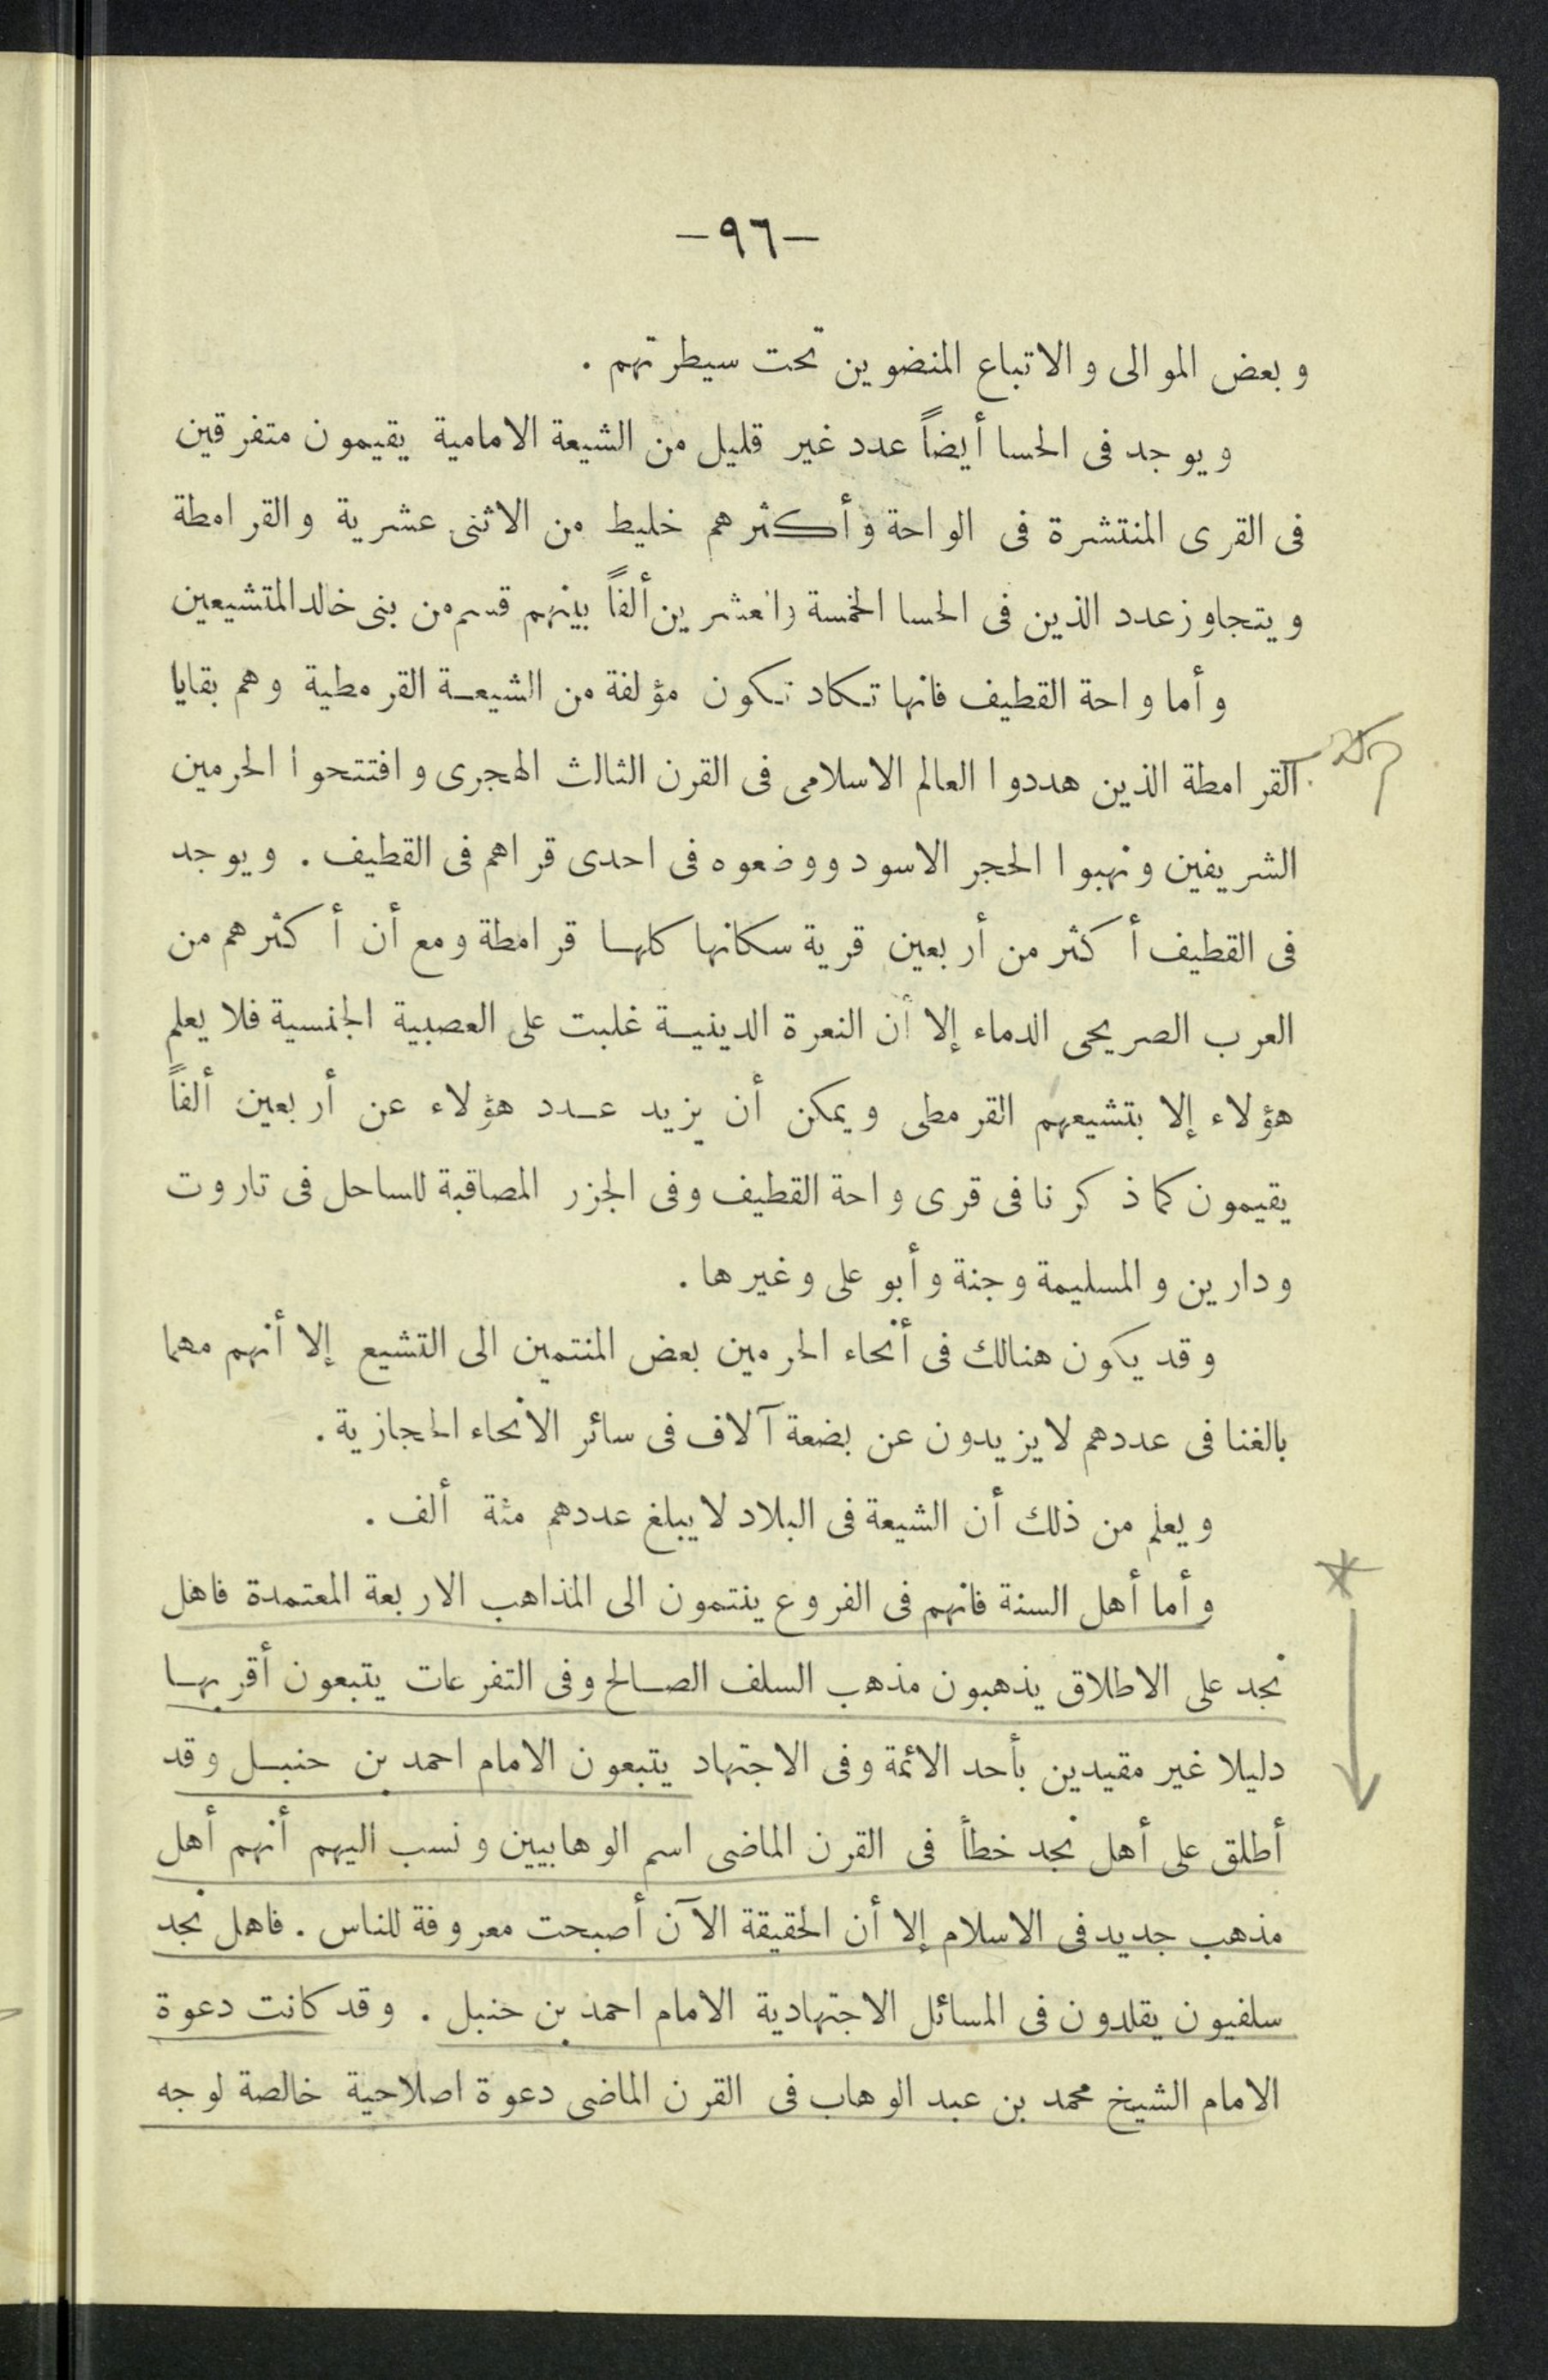 —٩٦—
وبعض الموالى والاتباع المنضوين تحت سيطرتهم .
ويوجد فى الحسا أيضاً عدد غير قليل من الشيعة الامامية يقيمون متفرقين
فى القرى المنتشرة فى الواحة وأكثرهم خليط من الاثنى عشرية والقرامطة
ويتجاوز عدد الذين فى الحسا الخمسة والعشرين ألفاً بينهم قسم من بنى خالد المتشيعين
وأما واحة القطيف فانها تكاد تكون مؤلفة من الشيعة القرمطية وهم بقايا
القرامطة الذين هددوا العالم الاسلامى فى القرن الثالث الهجرى وافتتحوا الحرمين
الشريفين ونهبوا الحجر الاسود ووضعوه فى احدى قراهم فى القطيف . ويوجد
فى القطيف أكثر من أربعين قرية سكانها كلها قرامطة ومع أن أكثرهم من
العرب الصريحى الدماء إلا أن النعرة الدينية غلبت على العصبية الجنسية فلا يعلم
هؤلاء إلا بتشيعهم القرمطى ويمكن أن يزيد عدد هؤلاء عن أربعين ألفاً
يقيمون كما ذكرنا فى قرى واحة القطيف وفى الجزر المصاقبة للساحل فى تاروت
ودارين والمسليمة وجنة وأبو على وغيرها .
وقد يكون هنالك فى أنحاء الحرمين بعض المنتمين الى التشيع إلا أنهم مهما
بالغنا فى عددهم لا يزيدون عن بضعة آلاف فى سائر الانحاء الحجازية .
ويعلم من ذلك أن الشيعة فى البلاد لا يبلغ عددهم مئة ألف .
وأما أهل السنة فانهم فى الفروع ينتمون الى المذاهب الاربعة المعتمدة فاهل
نجد على الاطلاق يذهبون مذهب السلف الصالح وفى التفرعات يتبعون أقربها
دليلا غير مقيدين بأحد الائمة وفى الاجتهاد يتبعون الامام احمد بن حنبل وقد
أطلق على أهل نجد خطأ فى القرن الماضى اسم الوهابيين ونسب اليهم أنهم أهل
مذهب جديد فى الاسلام إلا أن الحقيقة الآن أصبحت معروفة للناس . فاهل نجد
سلفيون يقلدون فى المسائل الاجتهادية الامام احمد بن حنبل . وقد كانت دعوة
الامام الشيخ محمد بن عبد الوهاب فى القرن الماضى دعوة اصلاحية خالصة لوجه